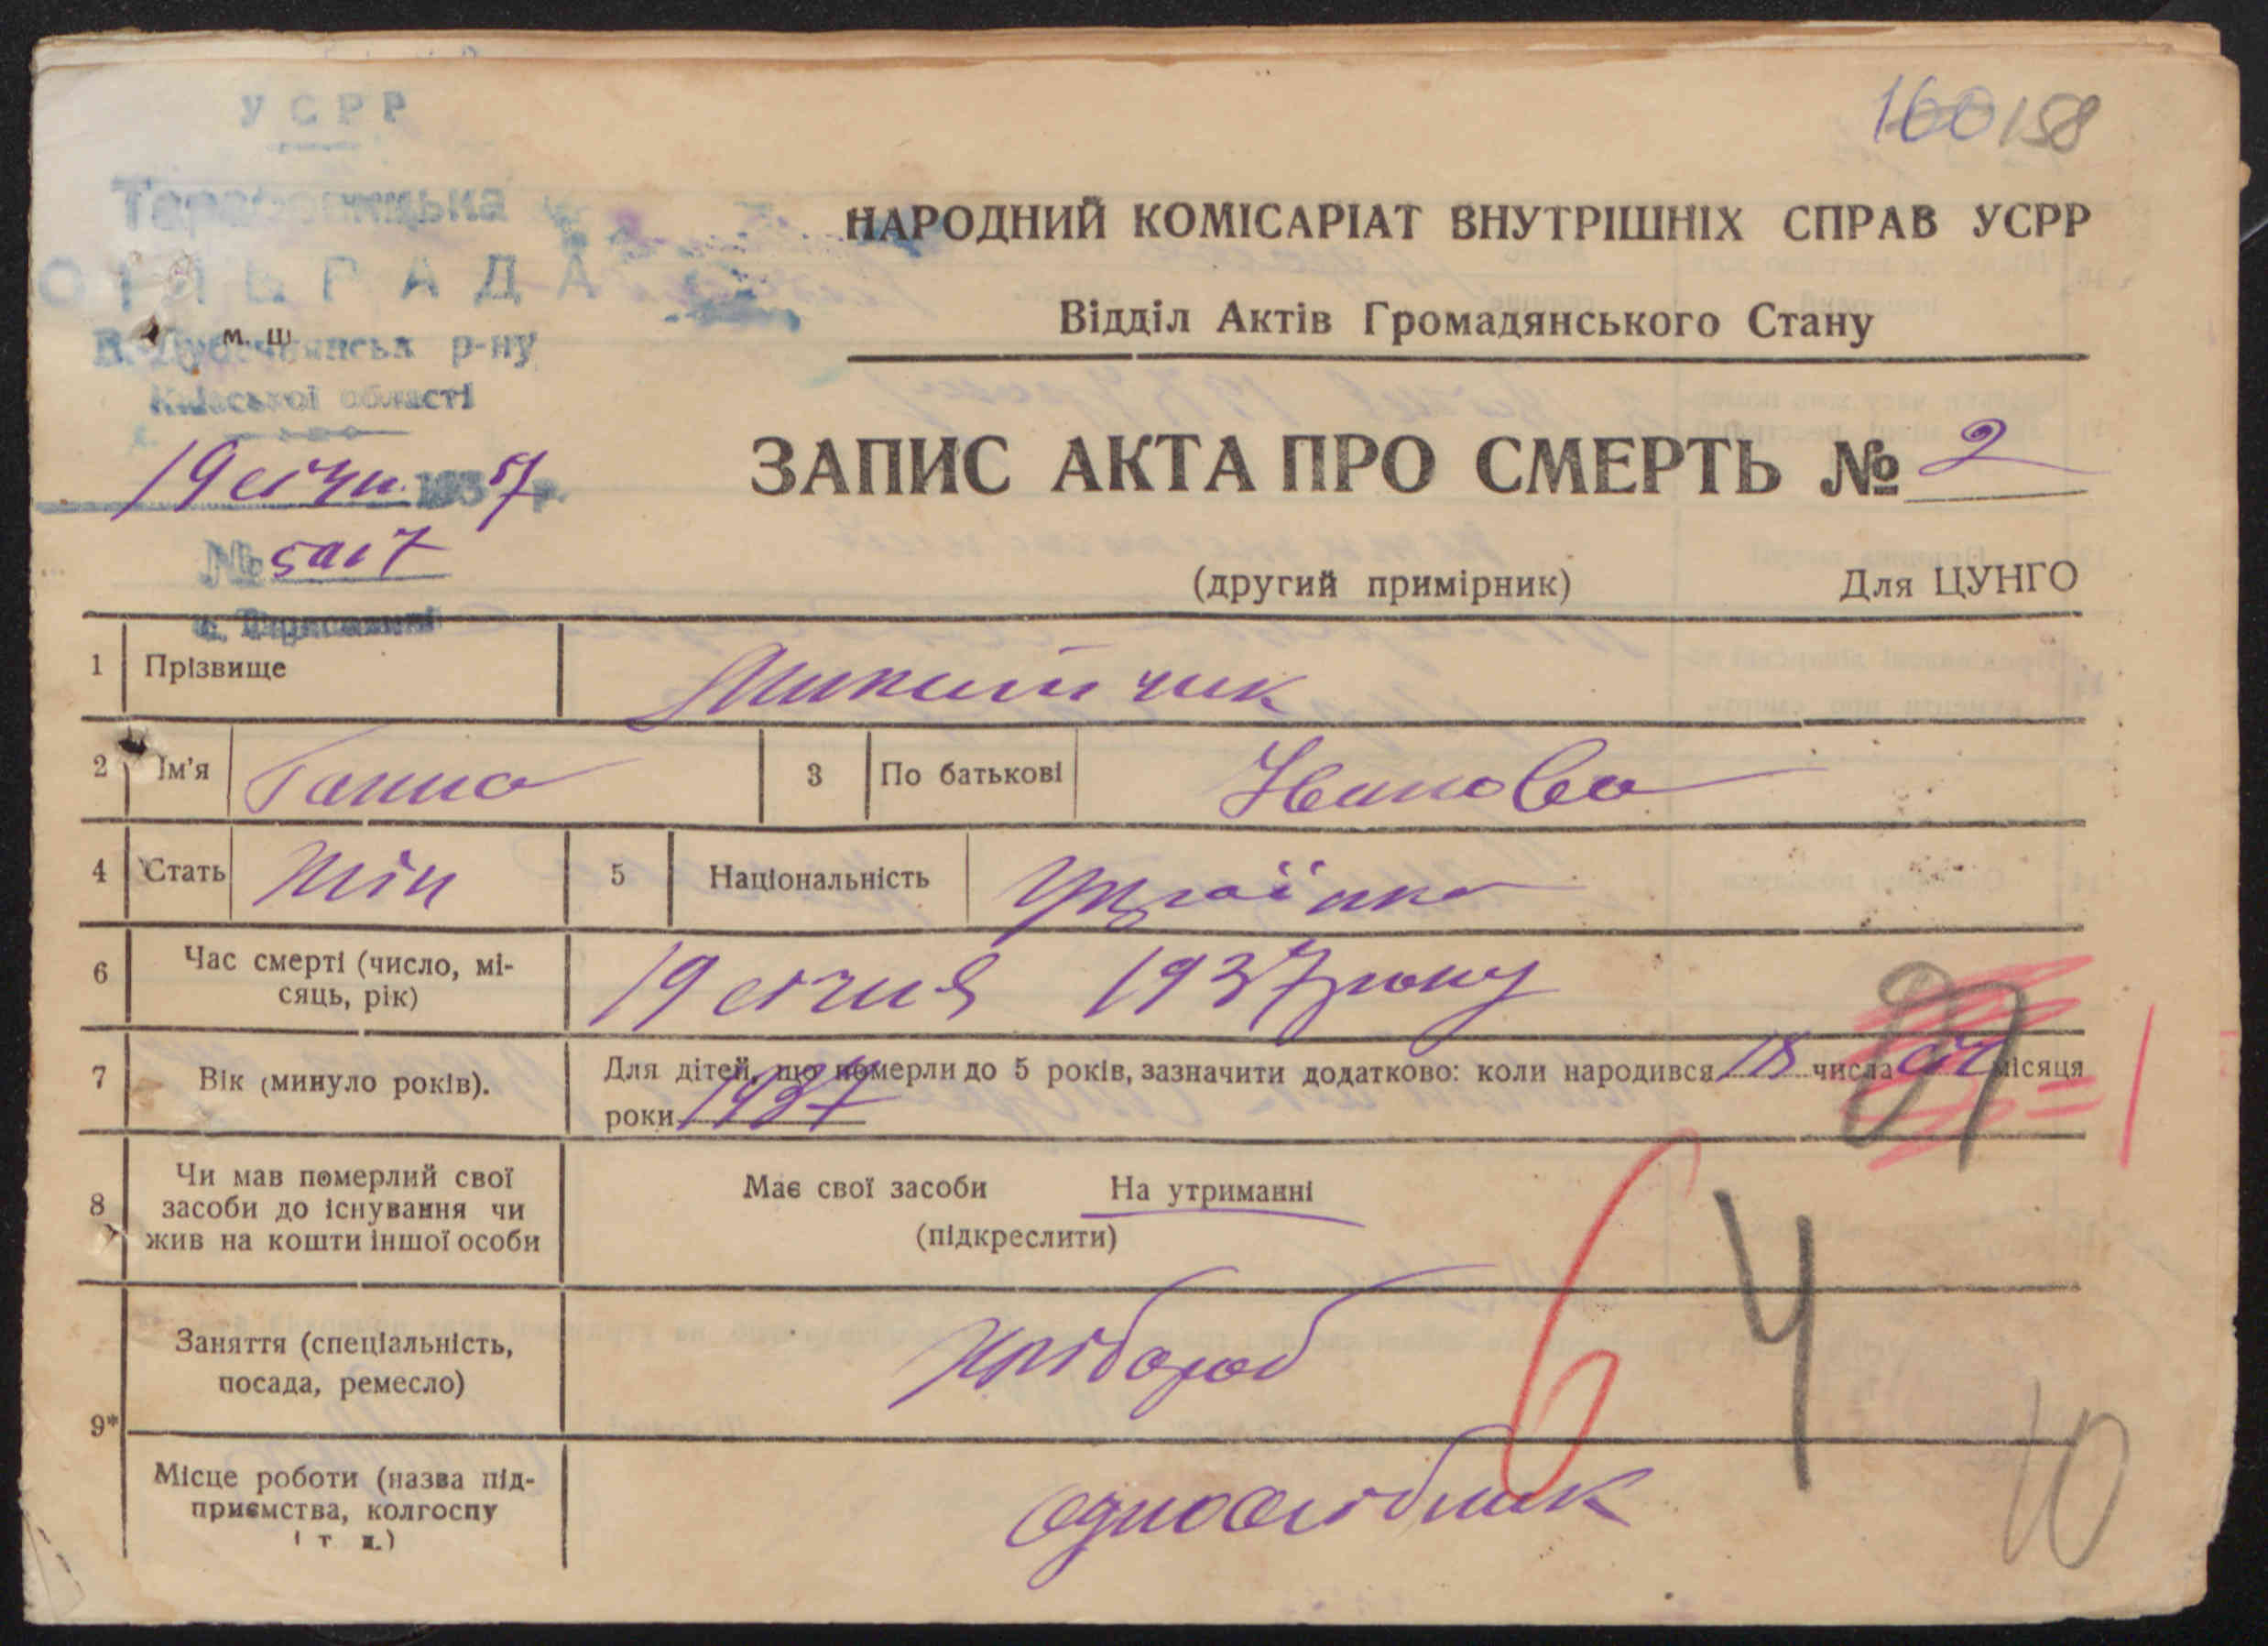 УСРР
160 158
Тарасовицька
НАРОДНИЙ КОМІСАРІАТ ВНУТРІШНІХ СПРАВ УСРР
РАДА
Відділ Актів Громадянського Стану
м. ш
р-ну
Київської області
ЗАПИС АКТА ПРО СМЕРТЬ № 2
19 січн. 1937 р.
№
(другий примірник) Для ЦУНГО
1 Прізвище Микитчик
2 Ім'я Ганна 3 По батькові Іванова
4 Стать жін 5 Національність Українка
6 Час смерті (число, мі-
сяць, рік) 19 січня 1937 року
7 Вік (минуло років). Для дітей, що померли до 5 років, зазначити додатково: коли народився 18 числа місяця
роки 1937
8 Чи мав померлий свої
засоби до існування чи
жив на кошти іншої особи
Має свої засоби На утриманні
(підкреслити)
6 4
9* Заняття (спеціальність,
посада, ремесло) хлібороб
10
Місце роботи (назва під-
приємства, колгоспу
і т д.) одноосібник